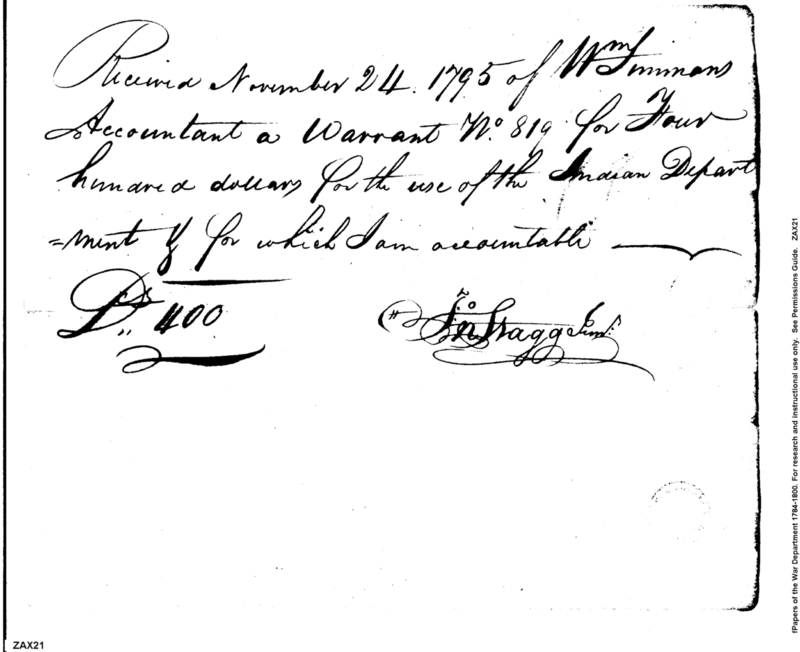 Received November 24. 1795 of Wm Simmons
Accountant a Warrant No. 819 for Four
hundred dollars for the use of the Indian Depart
=ment & for which I am accountable
Ds. 400
Jno Stagg Junr.
fPapers of the War Department 1784-1800. For research and instructional use only. See Permissions Guide. ZAX21
ZAX21